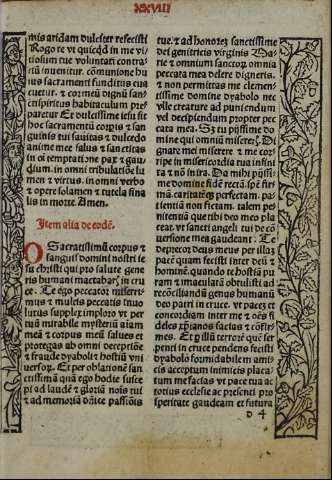 XXVIII
mis aridam dulciter refecisti
Rogo te vt quicqd in me vi
tiosum tue voluntati contra
riũ inuenitur. cõmunione hu
ius sacramenti funditus eua
cuetur. et cor meũ dignũ san
cti spiritus habitaculum pre
paretur. Et dulcissime iesu sit
hoc sacramentũ corpus et san
guinis tui suauitas et dulcedo
anime mee salus et sanctitas
in oĩ temptatiõe pax et gau
dium. in omni tribulatiõe lu
men et virtus. in omni verbo
et opere solamen et tutela fina
lis in morte. Amen.
Item alia de eodẽ.
O Sacratissimũ corpus et
sanguis domini nostri ie
su christi qui pro salute gene
ris humani mactabař in cru
ce. Te ego peccator miserri
mus et multis peccatis inuo
lutus supplex imploro vt per
tuũ mirabile mysteriũ aĩam
meã et corpus meũ salues et
protegas ab omni deceptiõe
et fraude dyaboli et hostiũ vni
uersoꝝ. Et per oblationẽ san
ctissimã quã ego hodie susce
pi ad laudẽ et gloriã nois tui
et ad memoriã dñice passiõis
tue. et ad honorẽ sanctissime
dei genitricis virginis Ma
rie et omnium sanctoꝝ omnia
peccata mea delere digneris.
et non permittas me clemen
tissime domine dyabolo nec
vlle creature ad puniendum
vel decipiendum propter pec
cata mea. Sʒ tu pijssime do
mine qui omniũ misereř. Di
gnare mei miserere et me cor
ripe in misericordia tua infini
ta et nõ in ira. Da mihi pijssi-
me domine fidẽ rectã. spẽ fir
mã caritatẽqʒ perfectam. pa
tientiã non fictam. talem pe
nitentiã que tibi deo meo pla
ceat. vt sancti angeli tui de cõ
uersione mea gaudeant. Te
deprecor deus meus per illaʒ
pacẽ quam fecisti inter deũ et
hominẽ. quando te hostiã pu
ram et imaculatã obtulisti ad
recõciliandũ genus humanũ
deo patri in cruce. vt paceʒ et
concordiam inter me et oẽs fi
deles xp̃ianos facias et cõfir
mes. Et p illũ terrorẽ quẽ ser
penti in cruce pendens fecisti
dyabolo formidabilem amti
cis acceptum inimicis placa
tum me facias vt pace tua ac
totius ecclesie ac presenti pro
speritate gaudeam et futura
D 4